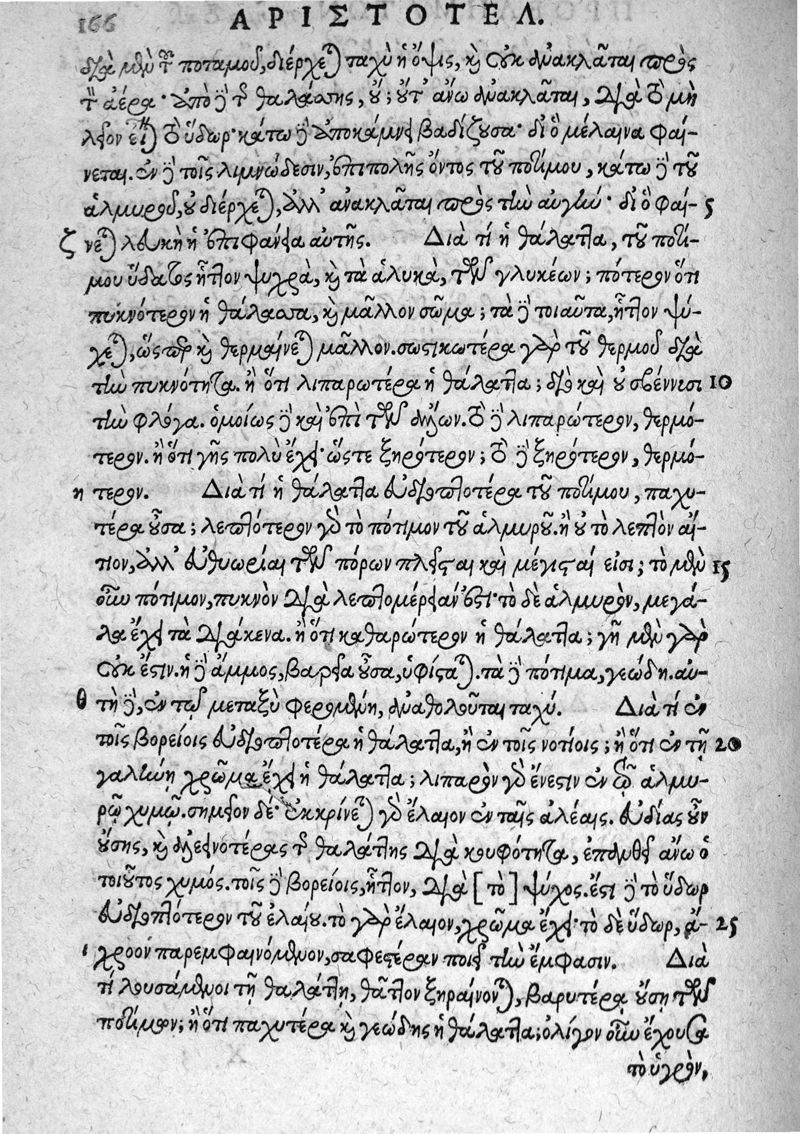 166 ΑΡΙΣΤΟΤΕΛ.
διὰ μὲν τοῦ ποταμοῦ, διέρχεται ταχὺ ἡ ὄψις, καὶ οὐκ ἀνακλᾶται πρὸς
τὸν ἀέρα· ἀπὸ δὲ τῆς θαλάσσης, οὔ; οὔτ' ἄνω ἀνακλᾶται, διὰ τὸ μὴ
λεῖον εἶναι τὸ ὕδωρ· κάτω δὲ ἀποκάμνει βαδίζουσα· διὸ μέλαινα φαί-
νεται. ἐν δὲ τοῖς λιμνώδεσιν, ἐπιπολῆς ὄντος τοῦ ποτίμου, κάτω δὲ τοῦ
ἁλμυροῦ, οὐ διέρχεται, ἀλλ' ἀνακλᾶται πρὸς τὴν αὐγήν· διὸ φαί- 5
ζ νεται λευκὴ ἡ ἐπιφάνεια αὐτῆς. Διὰ τί ἡ θάλαττα, τοῦ ποτί-
μου ὕδατος ἧττον ψυχρὰ, καὶ τὰ ἁλυκὰ, τῶν γλυκέων; πότερον ὅτι
πυκνότερον ἡ θάλασσα, καὶ μᾶλλον σῶμα; τὰ δὲ τοιαῦτα, ἧττον ψύ-
χεται, ὥσπερ καὶ θερμαίνεται μᾶλλον. σωστικωτέρα γὰρ τοῦ θερμοῦ διὰ
τὴν πυκνότητα. ἢ ὅτι λιπαρωτέρα ἡ θάλαττα; διὸ καὶ οὐ σβέννυσι 10
τὴν φλόγα. ὁμοίως δὲ καὶ ἐπὶ τῶν ἄλλων. τὸ δὲ λιπαρώτερον, θερμό-
τερον. ἢ ὅτι γῆς πολὺ ἔχει· ὥστε ξηρότερον; τὸ δὲ ξηρότερον, θερμό-
η τερον. Διὰ τί ἡ θάλαττα εὐδιοπτοτέρα τοῦ ποτίμου, παχυ-
τέρα οὖσα; λεπτότερον γὰρ τὸ πότιμον τοῦ ἁλμυροῦ. ἢ οὐ τὸ λεπτὸν αἴ-
τιον, ἀλλ' εὐθυωρίαι τῶν πόρων πλεῖσται καὶ μέγισται εἰσι; τὸ μὲν 15
οὖν πότιμον, πυκνὸν διὰ λεπτομέρειάν ἐστι· τὸ δὲ ἁλμυρὸν, μεγά-
λα ἔχει τὰ διάκενα. ἢ ὅτι καθαρώτερον ἡ θάλαττα; γῆ μὲν γὰρ
οὐκ ἔστιν. ἡ δὲ ἄμμος, βαρεῖα οὖσα, ὑφίσταται. τὰ δὲ πότιμα, γεώδη. αὕ-
θ τη δὲ, ἐν τῷ μεταξὺ φερομένη, ἀναθολοῦται ταχύ. Διὰ τί ἐν
τοῖς βορείοις εὐδιοπτοτέρα ἡ θάλαττα, ἢ ἐν τοῖς νοτίοις; ἢ ὅτι ἐν τῇ 20
γαλήνῃ χρῶμα ἔχει ἡ θάλαττα; λιπαρὸν γὰρ ἔνεστιν ἐν τῷ ἁλμυ-
ρῷ χυμῷ. σημεῖον δέ· ἐκκρίνεται γὰρ ἔλαιον ἐν ταῖς ἀλέαις. εὐδίας οὖν
οὔσης, καὶ ἀλεεινοτέρας τῆς θαλάττης διὰ κουφότητα, ἐπανθεῖ ἄνω ὁ
τοιοῦτος χυμός. τοῖς δὲ βορείοις, ἧττον, διὰ [τὸ] ψύχος. ἔστι δὲ τὸ ὕδωρ
εὐδιοπτότερον τοῦ ἐλαίου. τὸ γὰρ ἔλαιον, χρῶμα ἔχει· τὸ δὲ ὕδωρ, ἄ- 25
ι χροον παρεμφαινόμενον, σαφεστέραν ποιεῖ τὴν ἔμφασιν. Διὰ
τί λουσάμενοι τῇ θαλάττῃ, θᾶττον ξηραίνονται, βαρυτέρα οὔσῃ τῶν
ποτίμων; ἢ ὅτι παχυτέρα καὶ γεώδης ἡ θάλαττα; ὀλίγον οὖν ἔχουσα
τὸ ὑγρὸν,